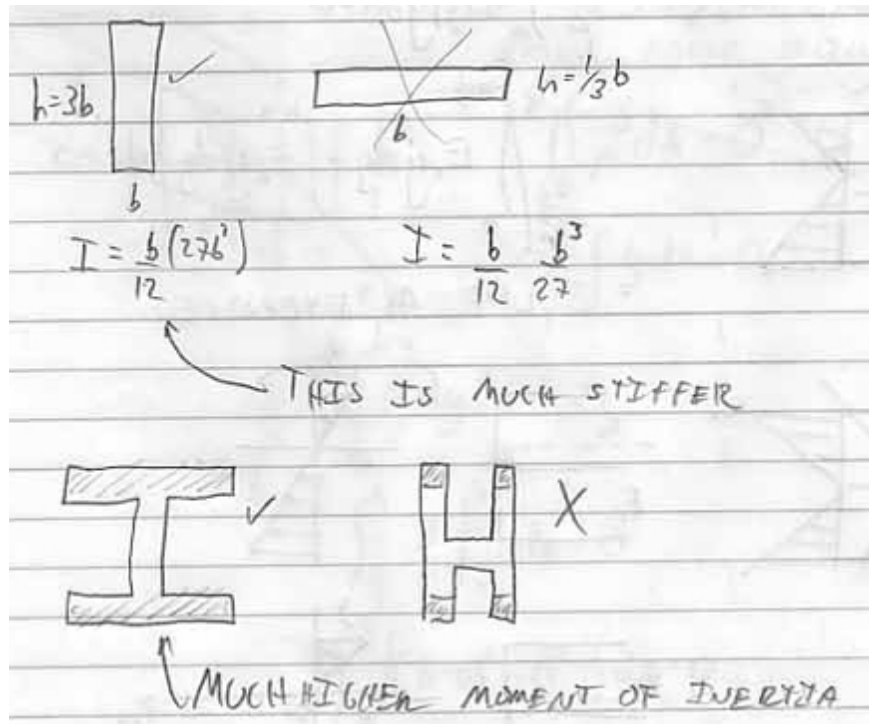 h=3b
h=1/3 b
b
b
I = b/12 (27b³)
I = b/12 b³/27
THIS IS MUCH STIFFER
MUCH HIGHER MOMENT OF INERTIA